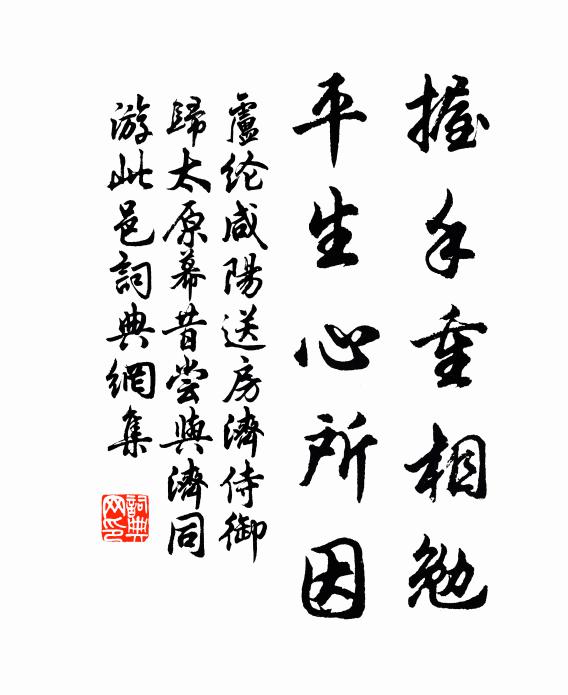 握手重相勉
平生心所因
盧纶咸陽送房濟侍御
歸太原幕昔嘗與濟同
游此邑詞典網集
詞典
网印